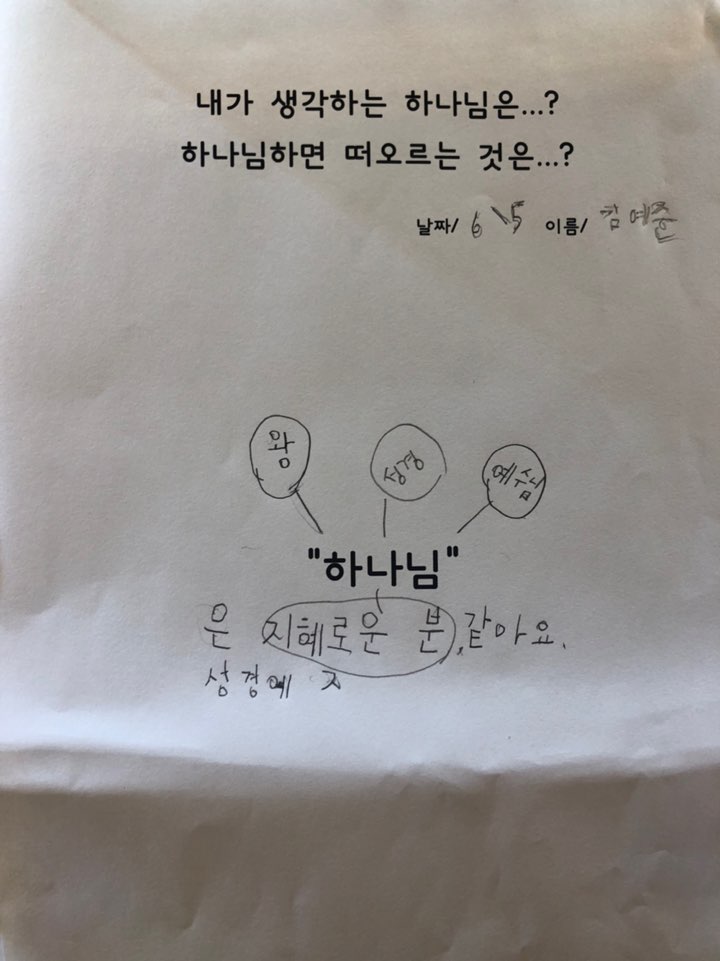 내가 생각하는 하나님은...?
하나님하면 떠오르는 것은...?
날짜/ 6\5 이름/ 김예준
왕 성경 예수님
"하나님"
은 지혜로운 분 같아요.
성경에 지